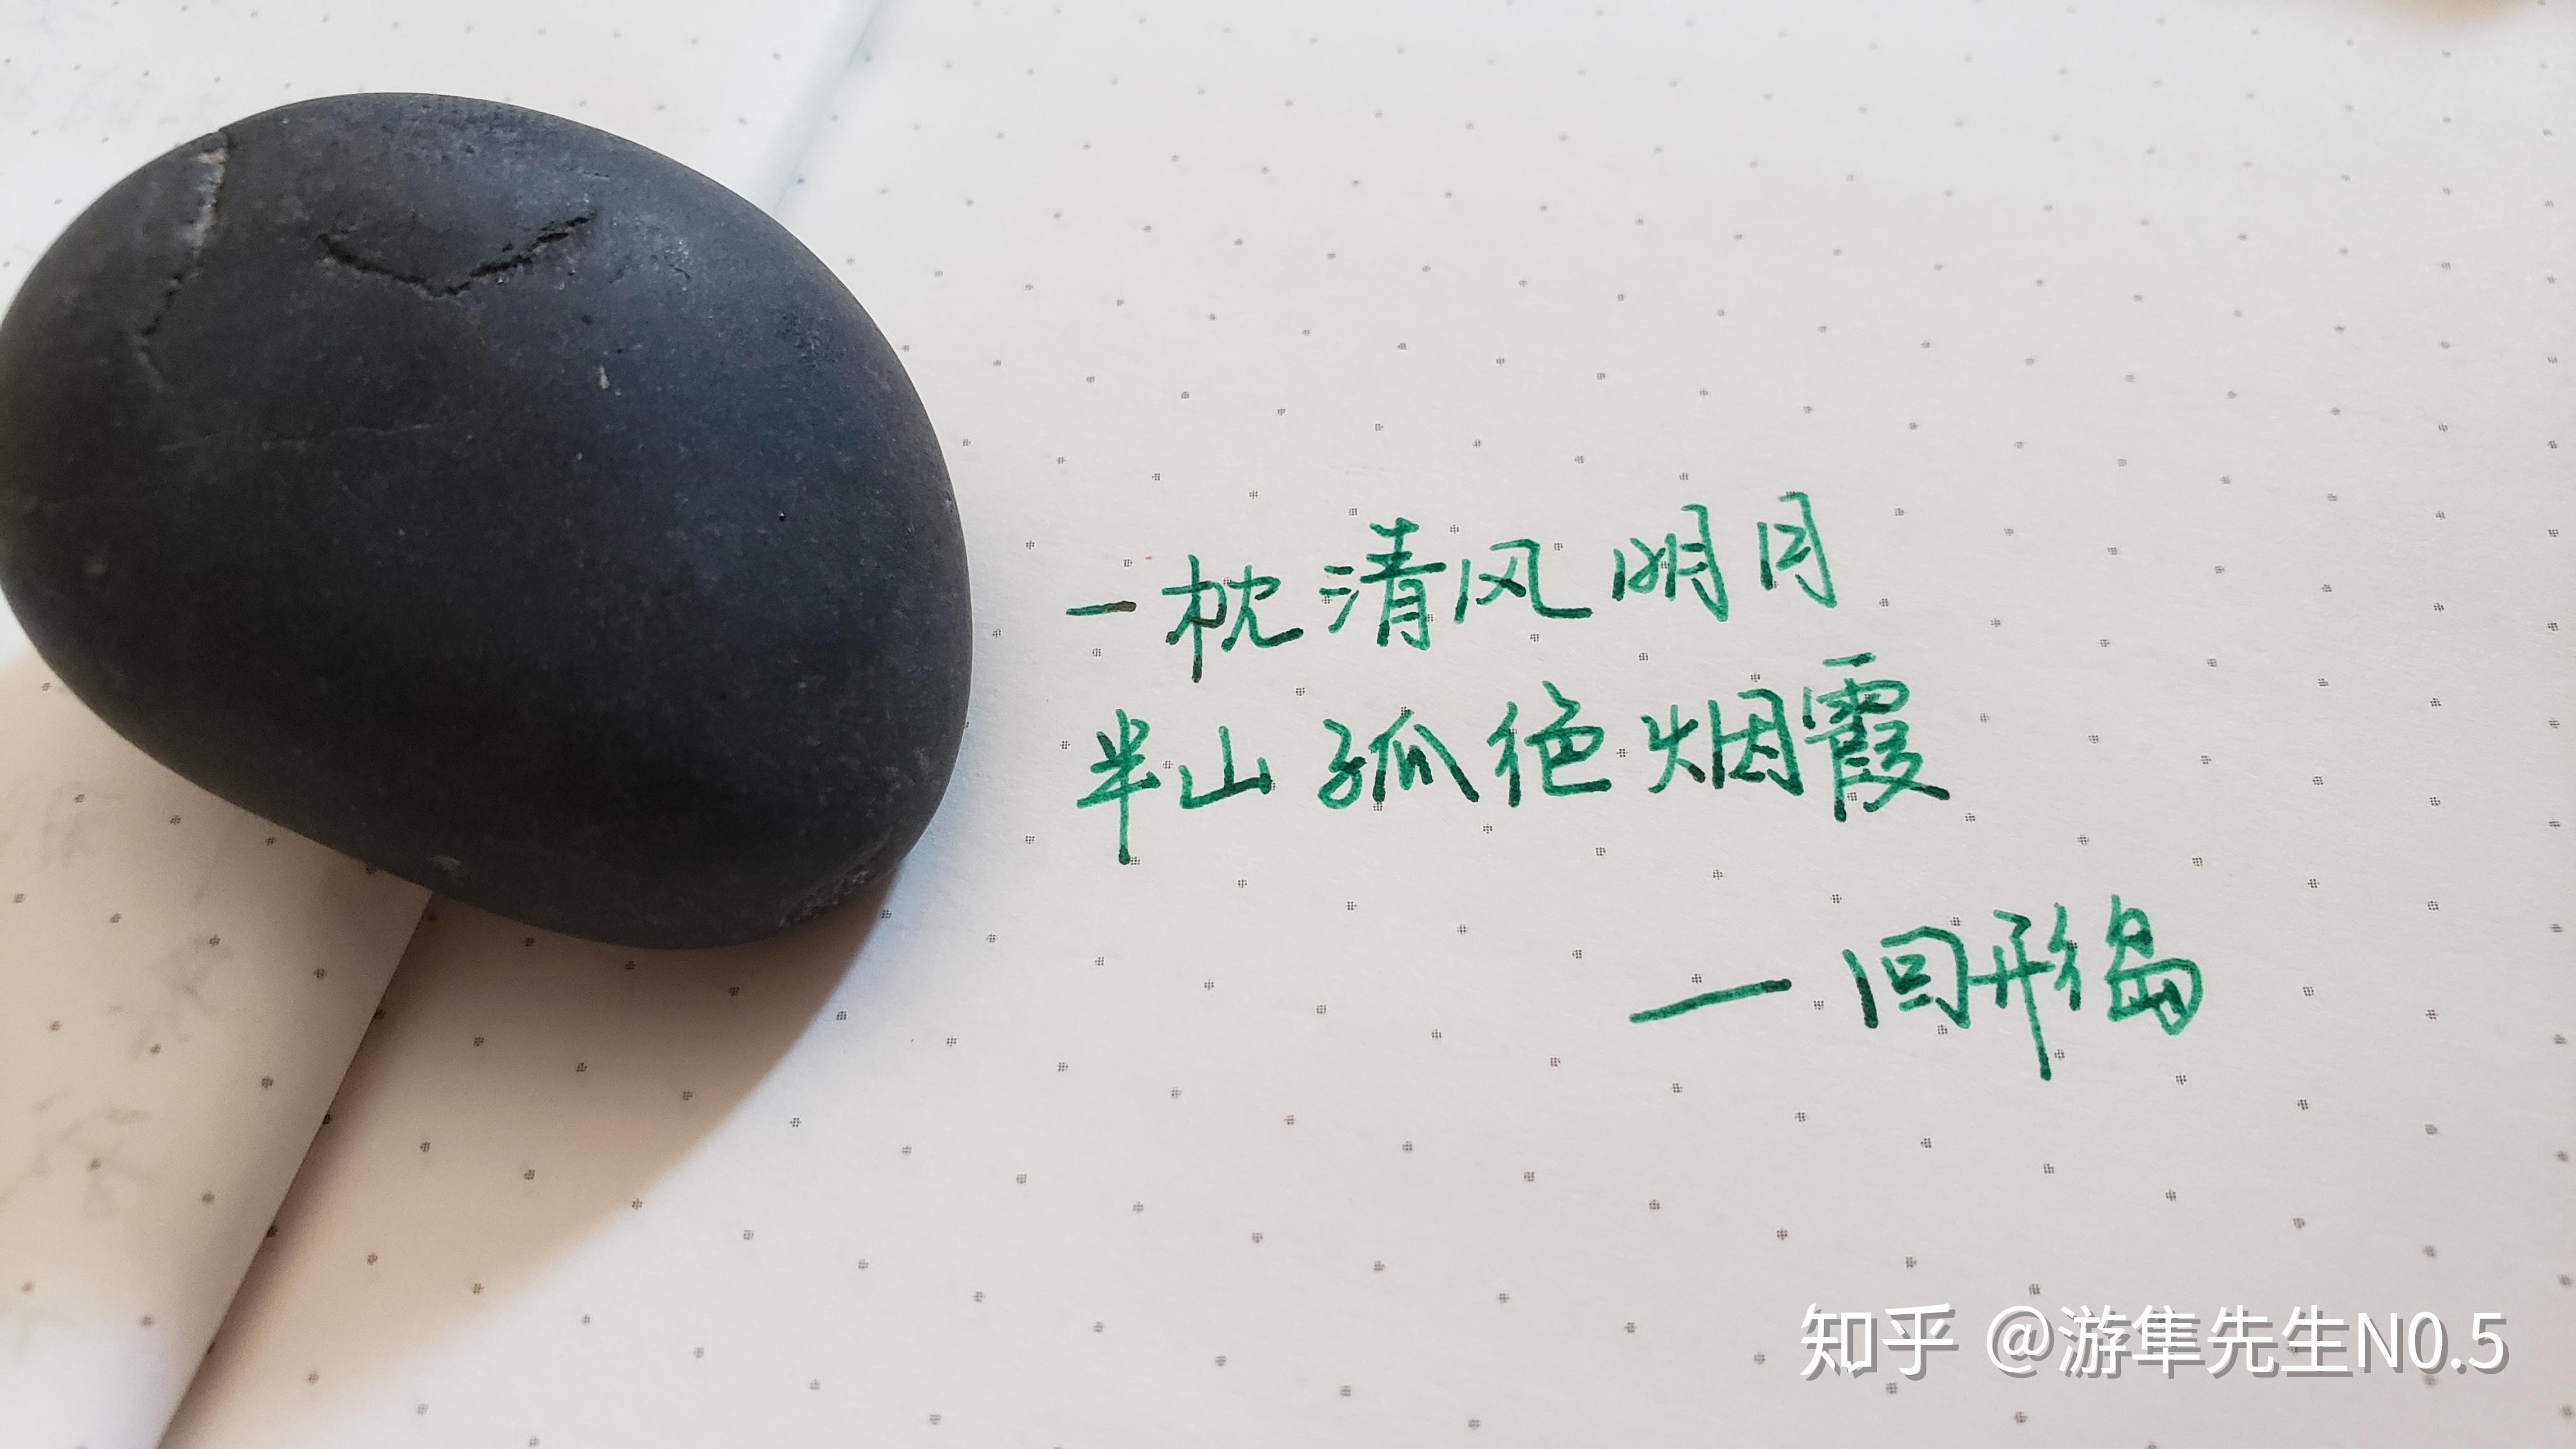 一枕清风明月
半山孤绝烟霞
— 回形岛
知乎 @游隼先生N0.5